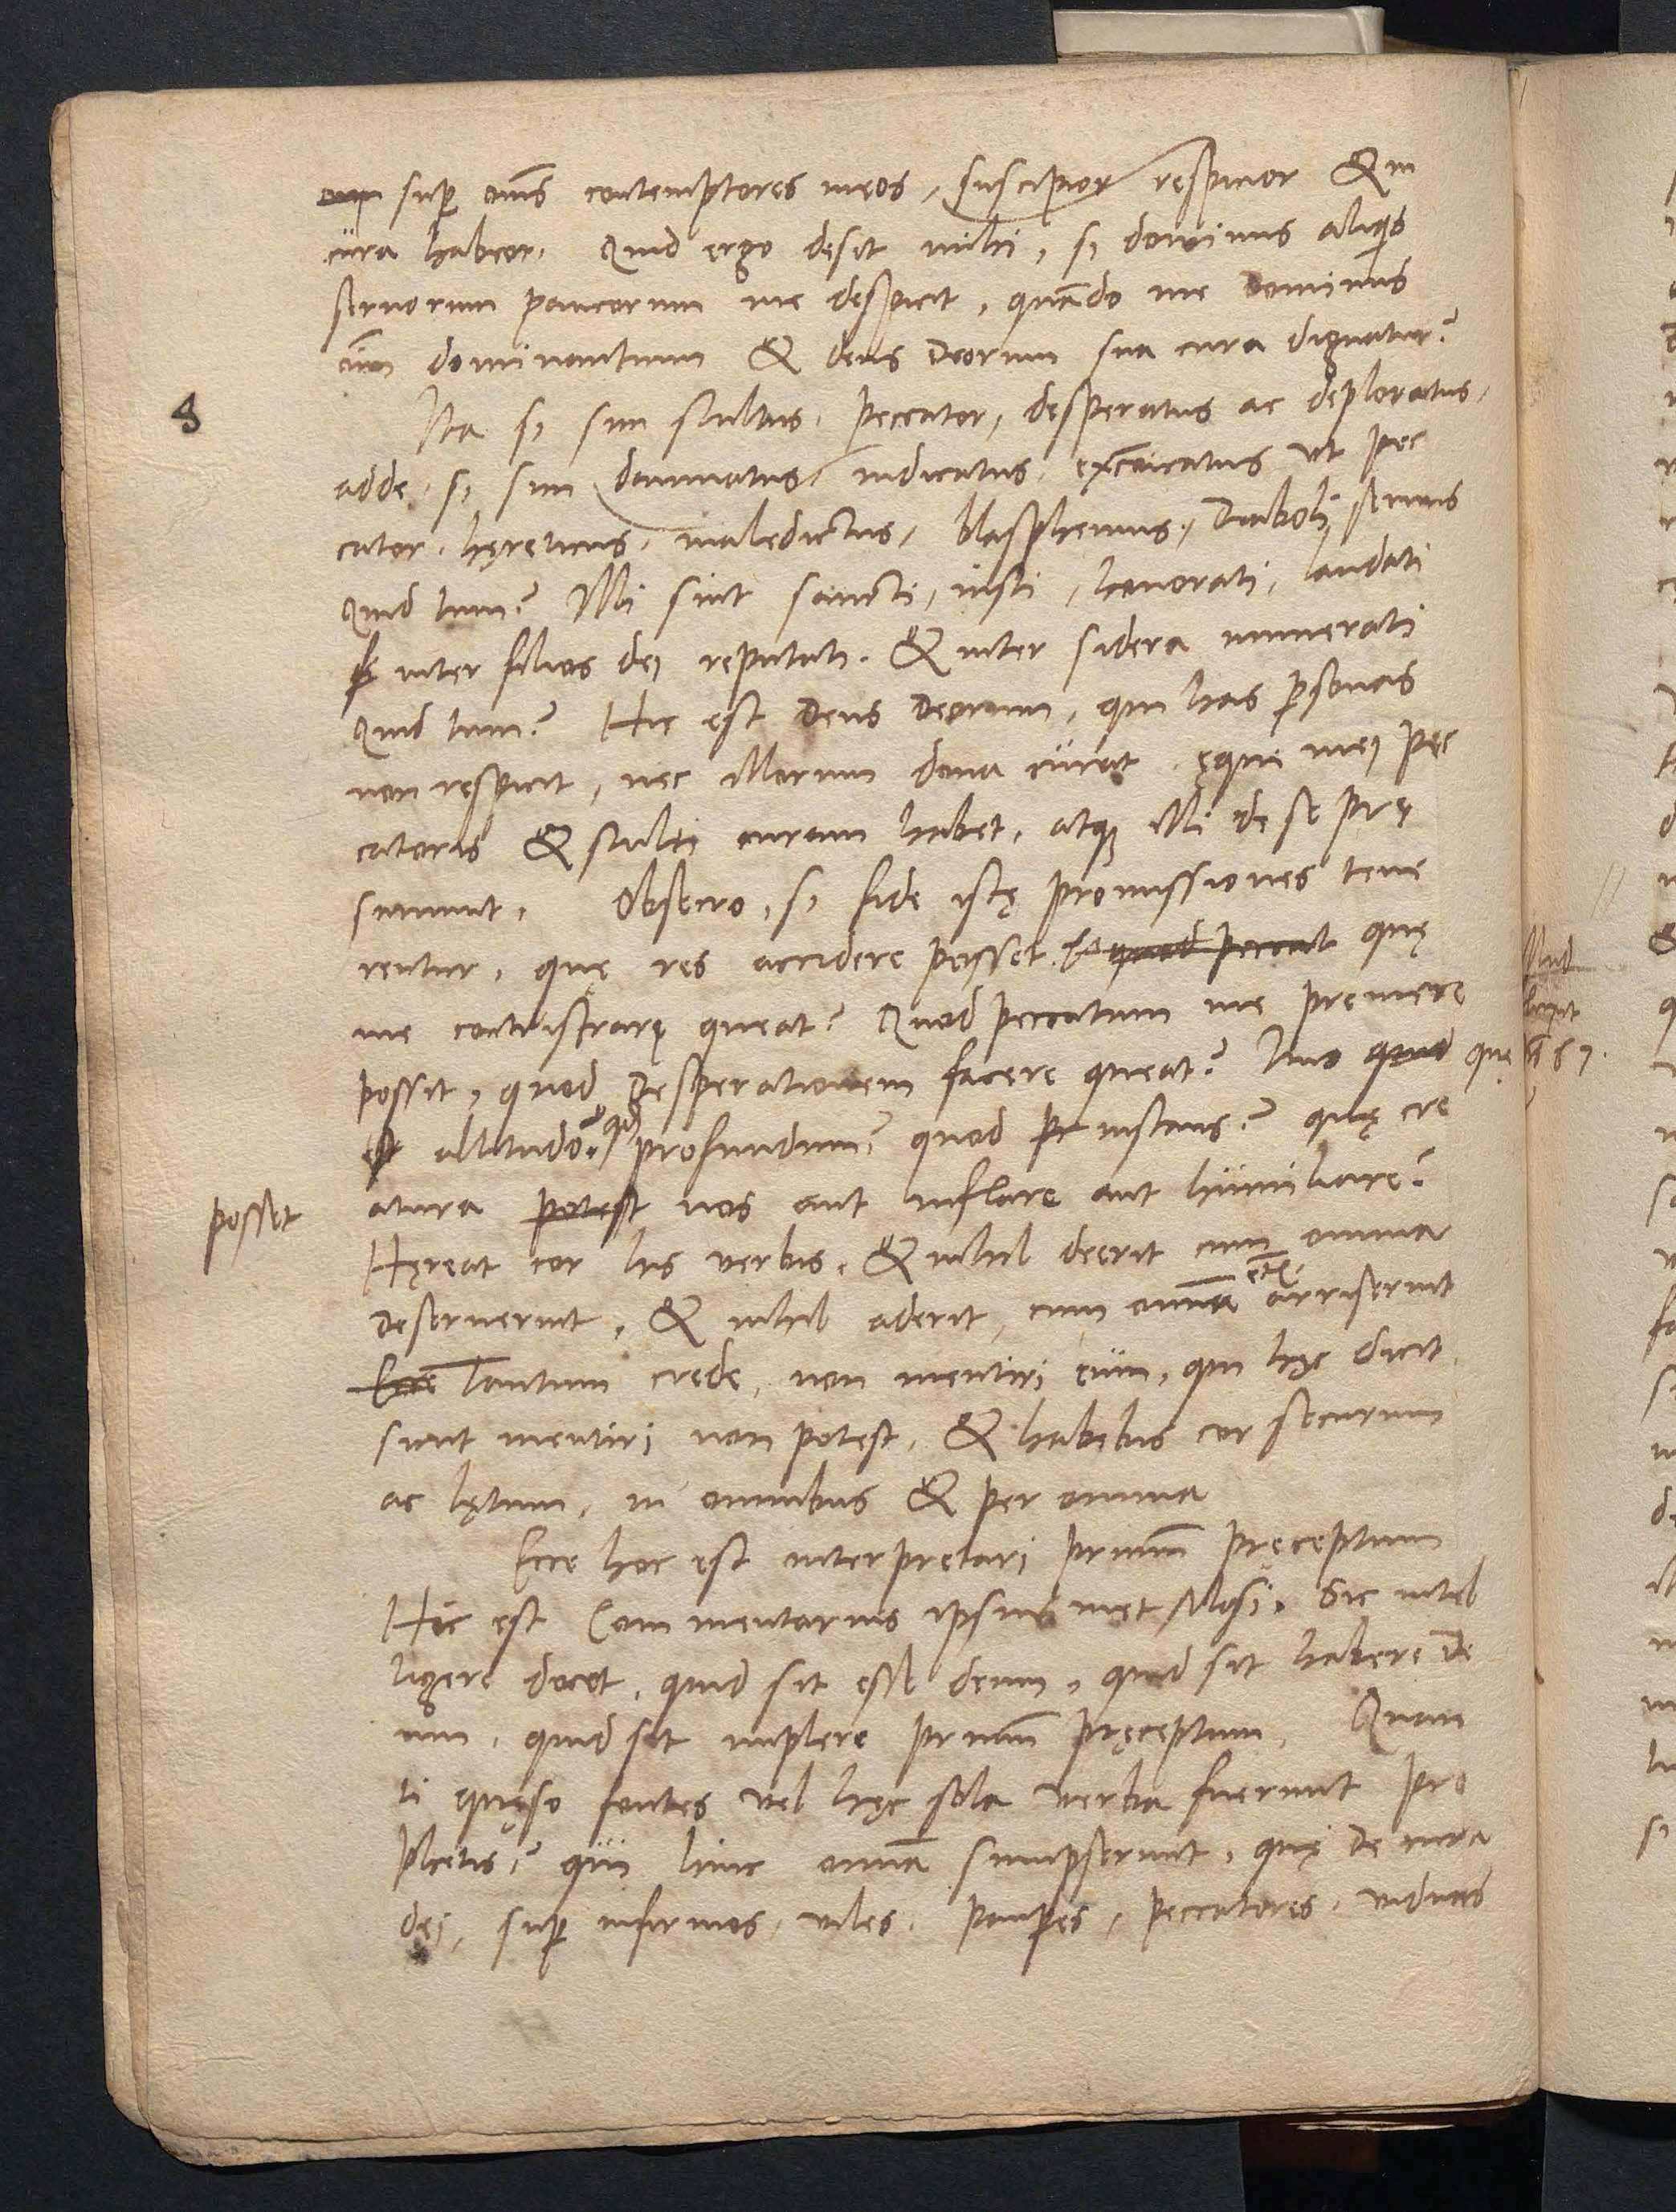 sup oms contemptores meos, suscipior respicior & in
cura habeor. Quid ergo deest mihi, si dominus aliqs
seruorum paucorum me despicit, quando me Dominus
oim dominantium & deus Deorum sua cura dignatur?
8
Ita si sim stultus. peccator, desperatus ac deploratus,
adde, si sim damnatus, iudicatus, excoicatus ut pec
cator. hęreticus, maledictus, blasphemus, Diaboli seruus
Quid tum? Illi sint sancti, iusti, honorati, laudati
inter filios dei reputati. & inter sidera numerati
Quid tum? Hic est Deus Deorum, qui has psonas
non respicit, nec illorum dona curat, ęque mei pec
catoris & stulti curam habet, atq illi de se prę
sumunt. Obsecro, si fide istę promissiones tene
rentur, quę res accidere posset, quod peccat quę
me contristrare queat? Quod peccatum me premere
possit, quod Desperationem facere queat? Imo quid que
altitudo? qd profundum? quod pr instans? quę cre
posset
atura potest nos aut inflare aut humiliare?
Hęreat cor his verbis, & nihil deerit cum omnia
deseruerint, & nihil aderit, cum omnia etia arriserint
Ecce Tantum crede, non mentiri eum, qui hęc dicit
sicut mentiri non potest, & habebis cor securum
ac lętum, in omnibus & per omnia
Ecce hoc est interpretari primum pręceptum
Hic est Commentarius ipsius met Mosi. Sic intel
ligere docet, quid sit esse deum, quid sit habere De
um, quid sit implere primum pręceptum. Quan
ti quęso fontes vel hęc sola verba fuerunt pro
phetis? qui hinc omnia sumpserunt, quę de cura
dei, sup infirmos, viles. paupes, peccatores, viduas